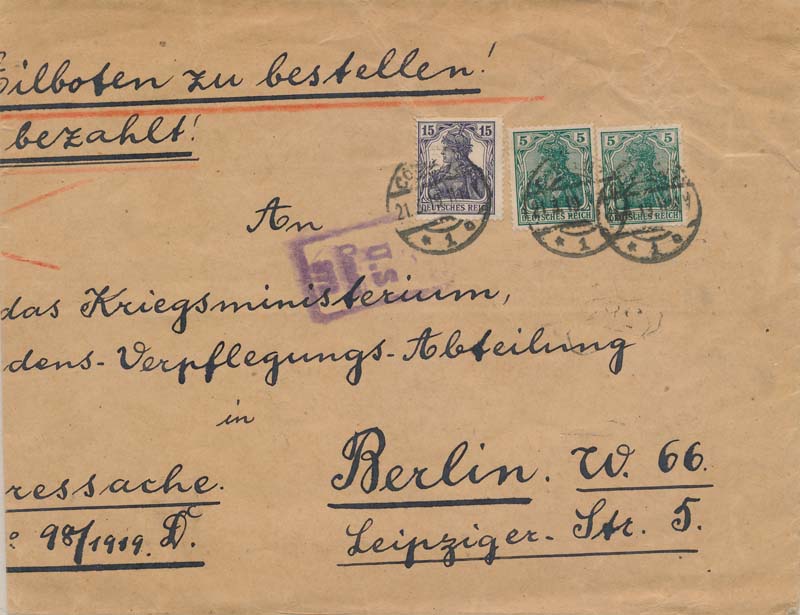 Eilboten zu bestellen!
bezahlt!
15 15
DEUTSCHES REICH
5 5
DEUTSCHES REICH
5 5
DEUTSCHES REICH
* 1 o
* 1 o
* 1 o
An
das Kriegsministerium,
dens-Verpflegungs-Abteilung
in
Berlin. W. 66.
Leipziger-Str. 5.
ressache.
o 98/1919. D.